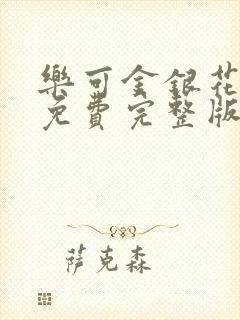 樂可金銀花
免費完整版
萨克森